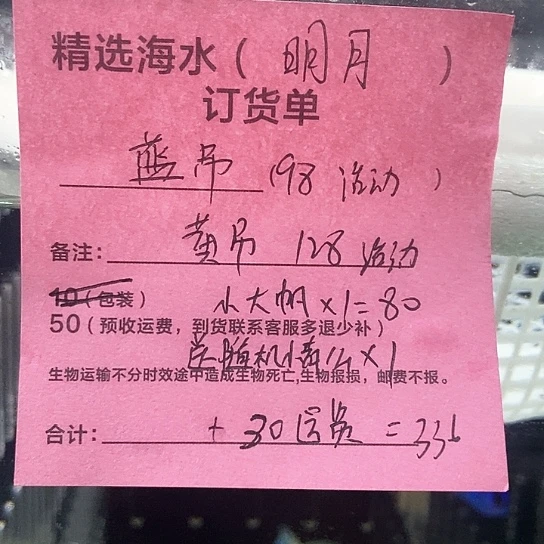 精选海水（明月）
订货单
蓝吊（98 活动）
备注：黄吊 128 活动
10（包装）小大帆×1=80
50（预收运费，到货联系客服多退少补）
送随机小×1
生物运输不分时效途中造成生物死亡,生物报损，邮费不报。
合计：+30运费=336